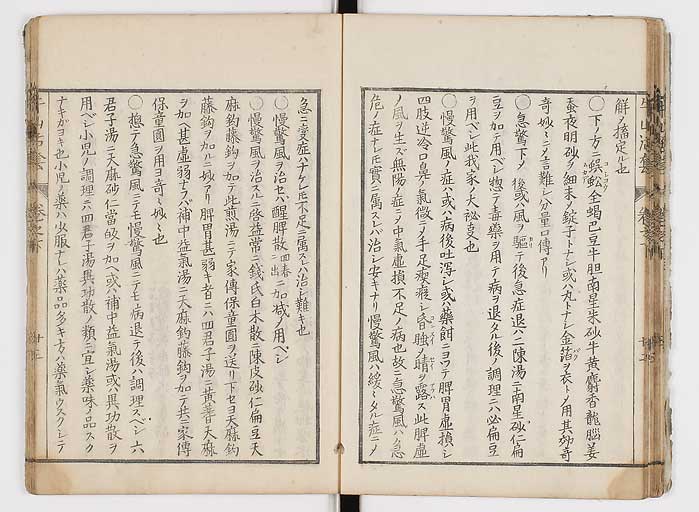 解ノ搐定ル也
○下ノ方ニ蜈蚣全蝎巴豆牛胆南星朱砂牛黄麝香龍脳姜
蚕夜明砂ノ細末ノ錠子トナレ或ハ丸トナレ金箔ヲ衣トメ用其効奇
奇妙々ニメ言難シ分量口傳アリ
○急驚下メ後或ハ風ヲ驅テ後急症退ハ二陳湯ニ南星砂仁偏
豆ヲ加テ用ベシ惣テ毒藥ヲ用テ病ヲ退タル後ノ調理ニハ必扁豆
ヲ用ベシ此我家ノ大秘支也
○慢驚風ノ症ハ或ハ病後吐瀉シ或ハ藥餌ニヨツテ脾胃虚損シ
四肢逆冷口鼻ノ氣微ニメ手足瘈瘲シ昏睡メ睛ヲ露ス此脾虚
ノ風ヲ生ス無陽ノ症ニメ中氣虚損不足ノ病也故ニ急驚風ハ急
危ノ症ナレ𪜈實ニ属スレバ治シ安キナリ慢驚風ハ緩ミタル症ニメ
急ニ変症ハナケレ𪜈不足ニ属スレバ治シ難キ也
○慢驚風ヲ治セバ醒脾散四春二出ニ加减メ用ベシ
○慢驚風ヲ治スルニ啓益常ニ錢氏白朮散ニ陳皮砂仁扁豆天
麻鈎藤鈎ヲ加テ此煎湯ニテ家傳保童圓ヲ送リ下セヨ天麻鈎
藤鈎ヲ加ルニ妙アリ脾胃甚弱キ者ニハ四君子湯ニ黄蓍天麻
ヲ加ヘ甚虚弱ナラバ補中益氣湯ニ天麻鈎藤鈎ヲ加テ共ニ家傳
保童圓ヲ用ヨ奇々妙々也
○惣テ急驚風ニテモ慢驚風ニテモ病退テ後ハ調理スベシ六
君子湯ニ天麻砂仁當皈ヲ加ヘ或ハ補中益氣湯或ハ異功散ヲ
用ベシ小児ノ調理ニハ四君子湯異功散ノ類ニ宜シ藥味ノ品スク
ナキガヨキ也小児ノ藥ハ少服ナレハ藥品多キ方ハ藥氣ウスクシテ